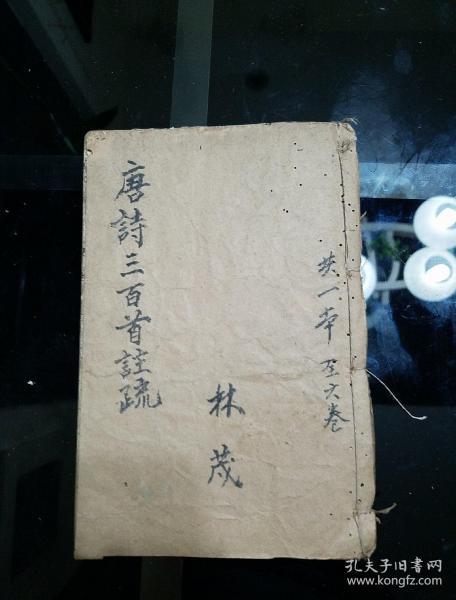 共一本 至六卷
林茂
唐詩三百首註疏
孔夫子旧书网
www.kongfz.com